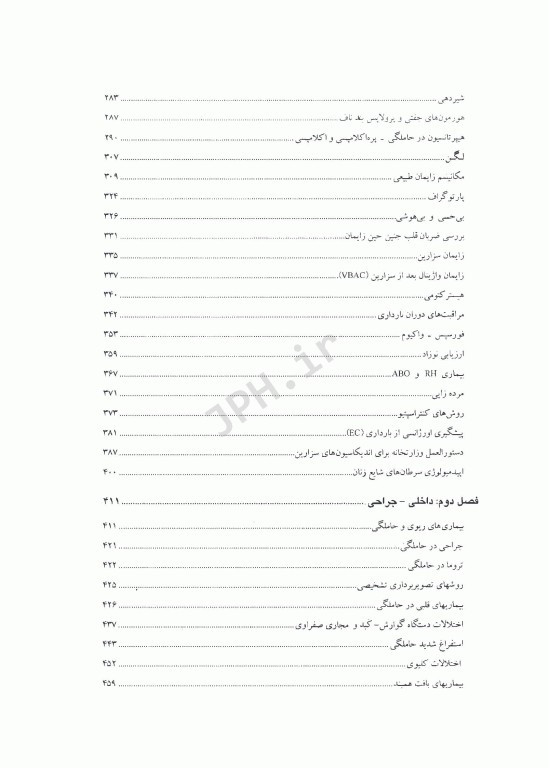 شیردهی ۲۸۳
هورمون‌های جفتی و پرولاپس بند ناف ۲۸۷
هیپرتانسیون در حاملگی - پره‌اکلامپسی و اکلامپسی ۲۹۰
لگن ۳۰۷
مکانیسم زایمان طبیعی ۳۰۹
پارتوگراف ۳۲۴
بی‌حسی و بی‌هوشی ۳۲۶
بررسی ضربان قلب جنین حین زایمان ۳۳۱
زایمان سزارین ۳۳۵
زایمان واژینال بعد از سزارین (VBAC) ۳۳۷
هیسترکتومی ۳۴۰
مراقبت‌های دوران بارداری ۳۴۲
فورسپس - واکیوم ۳۵۳
ارزیابی نوزاد ۳۵۹
بیماری RH و ABO ۳۶۷
مرده زایی ۳۷۱
روش‌های کنتراسپتیو ۳۷۳
پیشگیری اورژانسی از بارداری (EC) ۳۸۱
دستورالعمل وزارتخانه برای اندیکاسیون‌های سزارین ۳۸۷
اپیدمیولوژی سرطان‌های شایع زنان ۴۰۰
فصل دوم: داخلی – جراحی ۴۱۱
بیماری‌های ریوی و حاملگی ۴۱۱
جراحی در حاملگی ۴۲۱
تروما در حاملگی ۴۲۲
روشهای تصویربرداری تشخیصی ۴۲۵
بیماریهای قلبی در حاملگی ۴۲۶
اختلالات دستگاه گوارش- کبد و مجاری صفراوی ۴۳۷
استفراغ شدید حاملگی ۴۴۳
اختلالات کلیوی ۴۵۲
بیماریهای بافت همبند ۴۵۹
JPH.ir